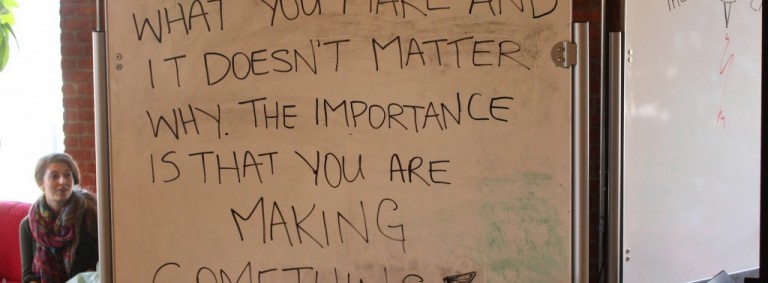 WHAT YOU MAKE AND
IT DOESN'T MATTER
WHY. THE IMPORTANCE
IS THAT YOU ARE
MAKING
SOMETHING